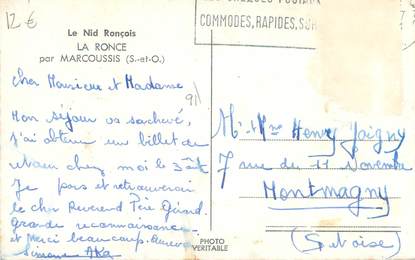 12€
Le Nid Ronçois
LA RONCE
par MARCOUSSIS (S.-et-O.)
COMMODES, RAPIDES, SÛR
Cher Monsieur et Madame
91
Mon séjour va s'achevé,
j'ai obtenu un billet de
retour chez moi le 3 août
Je pars et retrouverai
le cher Reverend Père Gérard.
grande reconnaissance
et Merci beaucoup. Aurevoir
Simone AKa
Mr et Mme Henry Joigny
7 rue du 11 Novembre
Montmagny
(S et oise)
PHOTO
VERITABLE